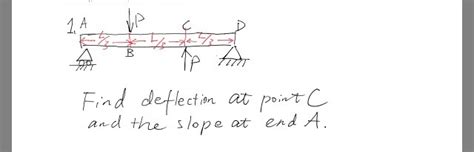 1. A P C D
L/3 L/3 L/3
B P
Find deflection at point C
and the slope at end A.